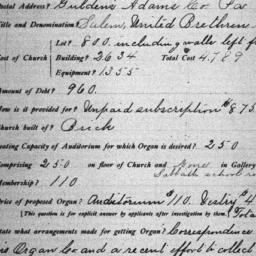 Postal Address? Guldens Adams Co Pa
Title and Denomination? Salem, United Brethren
Lot? 800. including walls left f
Cost of Church Building? 2634 Total Cost 4.789
Equipment? 1355
Amount of Debt? 960.
How is it provided for? Unpaid subscription $875
Church built of? Brick
Seating Capacity of Auditorium for which Organ is desired? 250
Comprising 250 on floor of Church and None in Gallery
Sabbath school ro
Membership? 110
Price of proposed Organ? Auditorium $110. Vestry $4
[This question is for explicit answer by applicants after investigation by them.] Tota
State what arrangements made for getting Organ? Correspondence
is Organ Co and a recent effort to collect